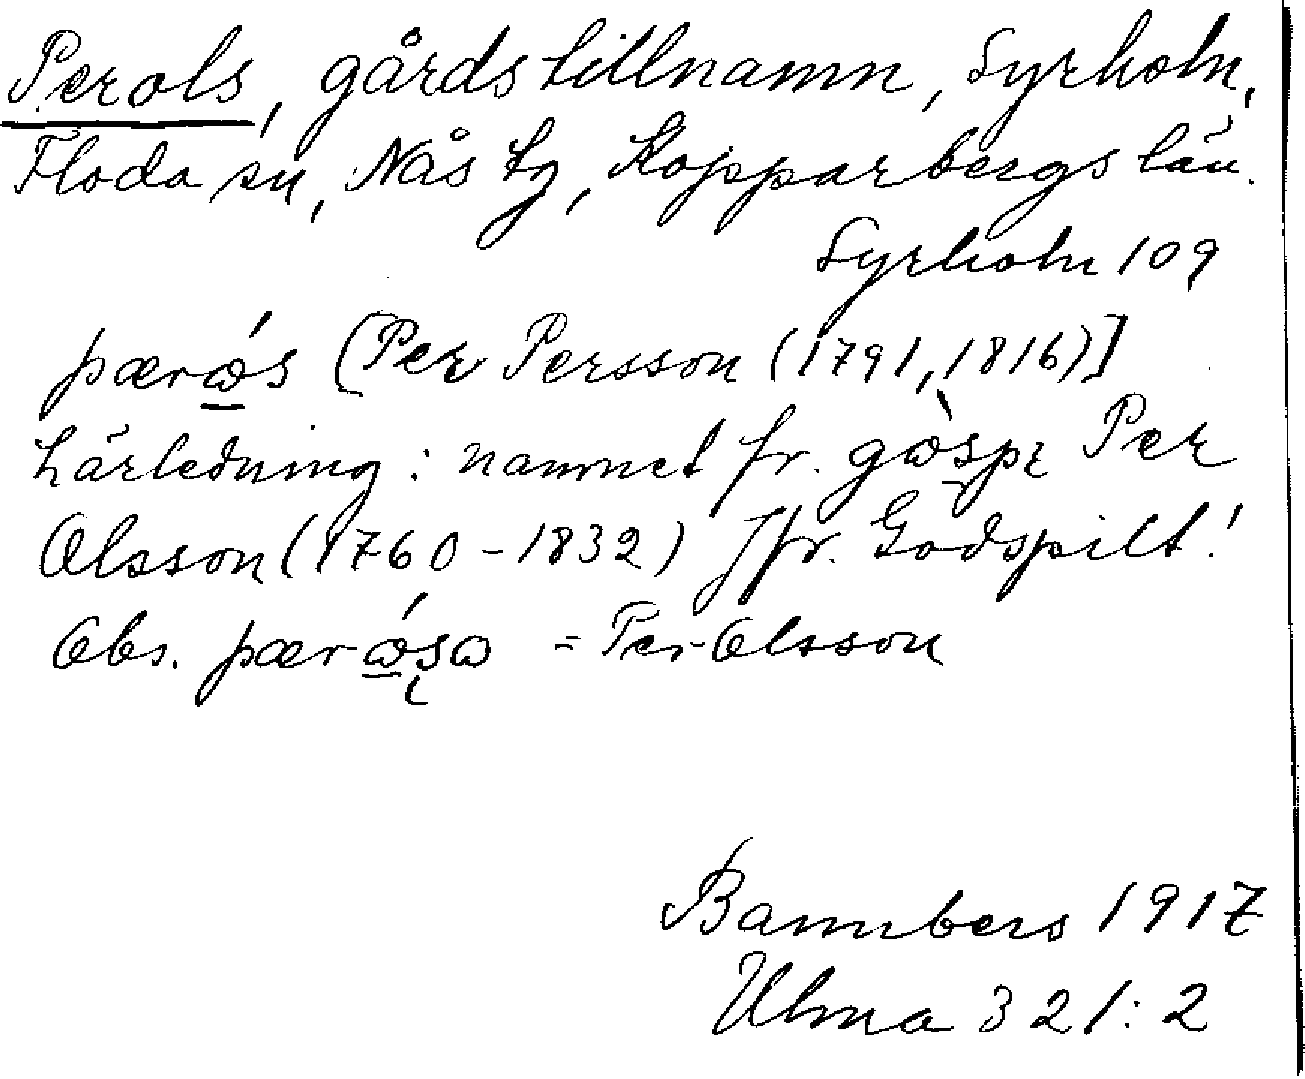 Perols, gårdstillnamn, Syrholn,
Floda sn, Nås tg, Kopparbergs län.
Syrholn 109
pærώ̲s [Per Persson (1791, 1816)]
härledning: namnet fr. gὼspr Per
Olsson (1760-1832) Jfr. Godspilt!
Obs. pær-ώ̲sω = Per-Olsson
Bannbers 1917
Ulma 321:2